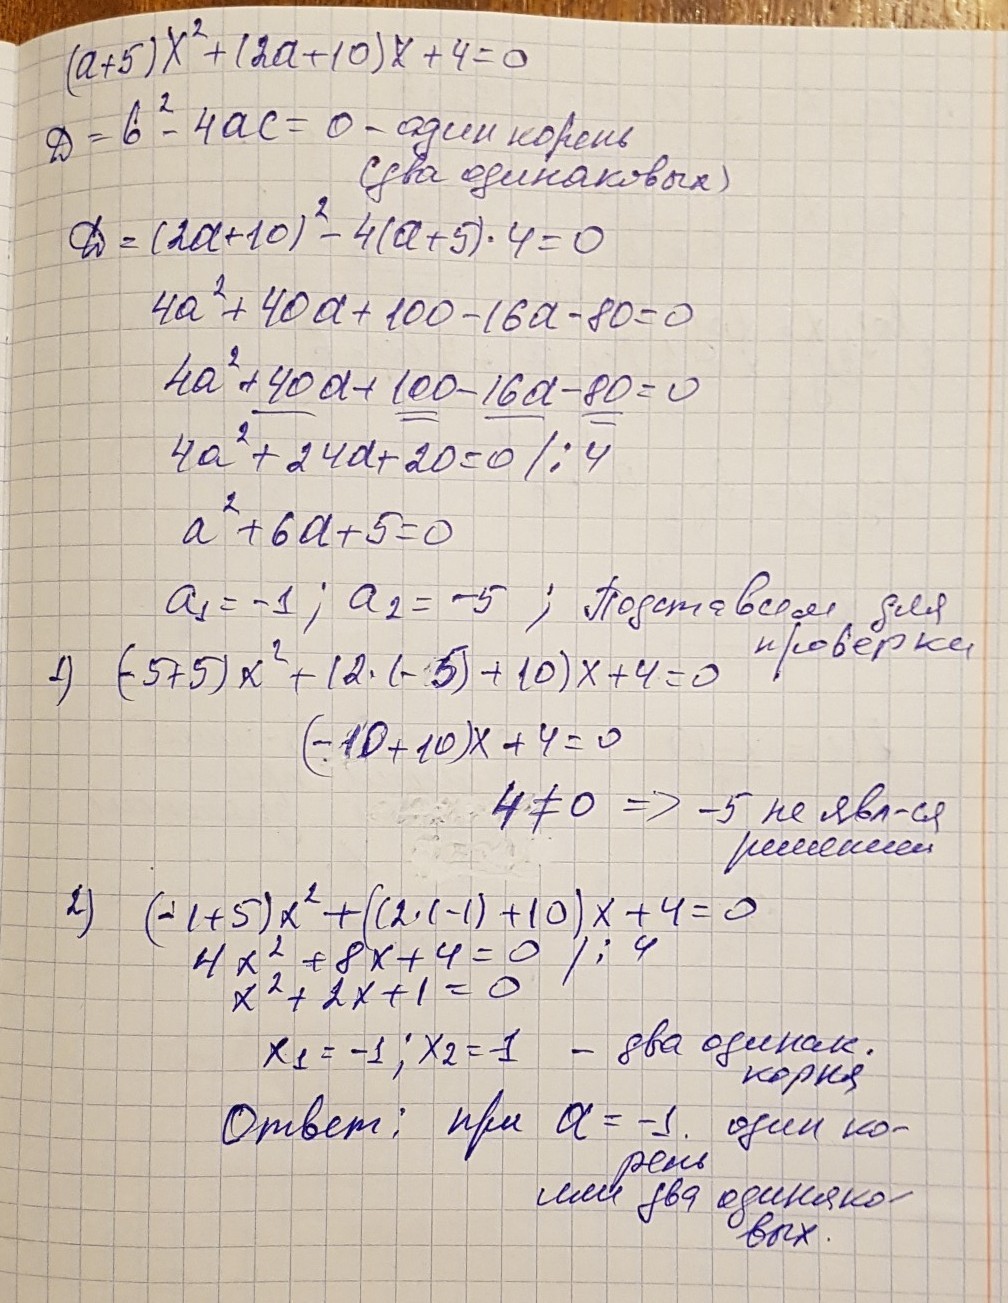 (a+5)x²+(2a+10)x+4=0
D=b²-4ac=0 - один корень
(два одинаковых)
D=(2a+10)²-4(a+5)·4=0
4a²+40a+100-16a-80=0
4a²+40a+100-16a-80=0
4a²+24a+20=0 /:4
a²+6a+5=0
a₁=-1; a₂=-5 ; Подставим для
проверки
1) (-5+5)x²+(2·(-5)+10)x+4=0
(-10+10)x+4=0
4≠0 => -5 не явл-ся
решением
2) (-1+5)x²+((2·(-1)+10)x+4=0
4x²+8x+4=0 /:4
x²+2x+1=0
x₁=-1; x₂=-1 - два одинак.
корня
Ответ: при a=-1. один ко-
рень
или два одинако-
вых.